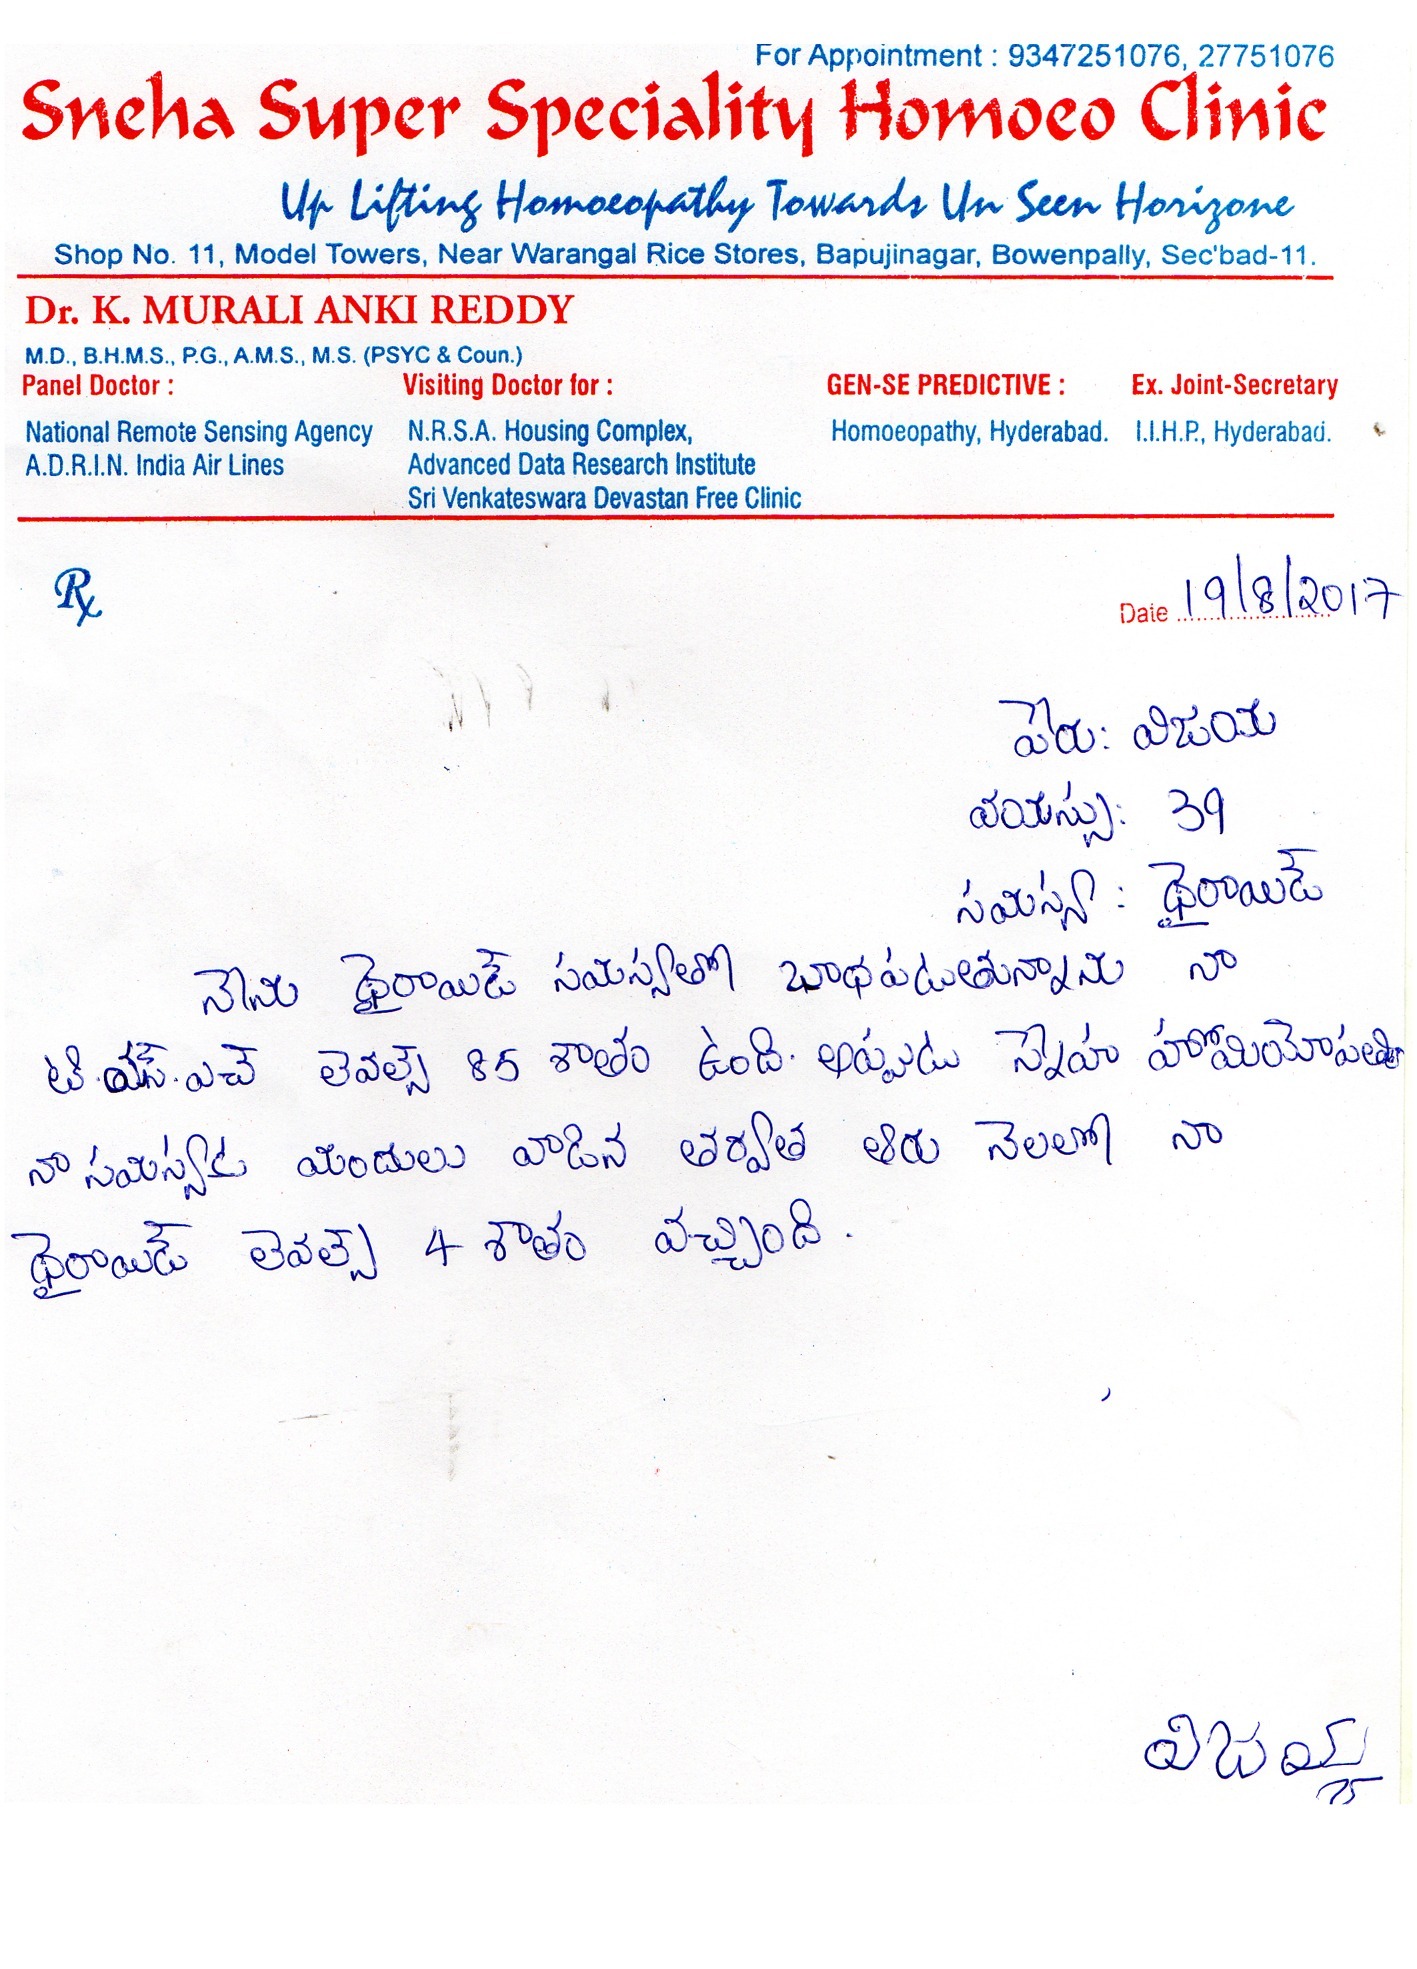 For Appointment : 9347251076, 27751076
Sneha Super Speciality Homoeo Clinic
Up Lifting Homoeopathy Towards Un Seen Horizone
Shop No. 11, Model Towers, Near Warangal Rice Stores, Bapujinagar, Bowenpally, Sec'bad-11.
Dr. K. MURALI ANKI REDDY
M.D., B.H.M.S., P.G., A.M.S., M.S. (PSYC & Coun.)
Panel Doctor : Visiting Doctor for : GEN-SE PREDICTIVE : Ex. Joint-Secretary
National Remote Sensing Agency N.R.S.A. Housing Complex, Homoeopathy, Hyderabad. I.I.H.P., Hyderabad.
A.D.R.I.N. India Air Lines Advanced Data Research Institute
Sri Venkateswara Devastan Free Clinic
Rx
Date 19/8/2017
పేరు: విజయ
వయస్సు: 39
సమస్య : థైరాయిడ్
నేను థైరాయిడ్ సమస్యతో బాధపడుతున్నాను నా
టి.యస్.ఎచ్ లెవల్స్ 85 శాతం ఉంది. అప్పుడు స్నేహ హోమియోపతి
నా సమస్యకు మందులు వాడిన తర్వాత ఆరు నెలలో నా
థైరాయిడ్ లెవల్స్ 4 శాతం వచ్చింది.
విజయ